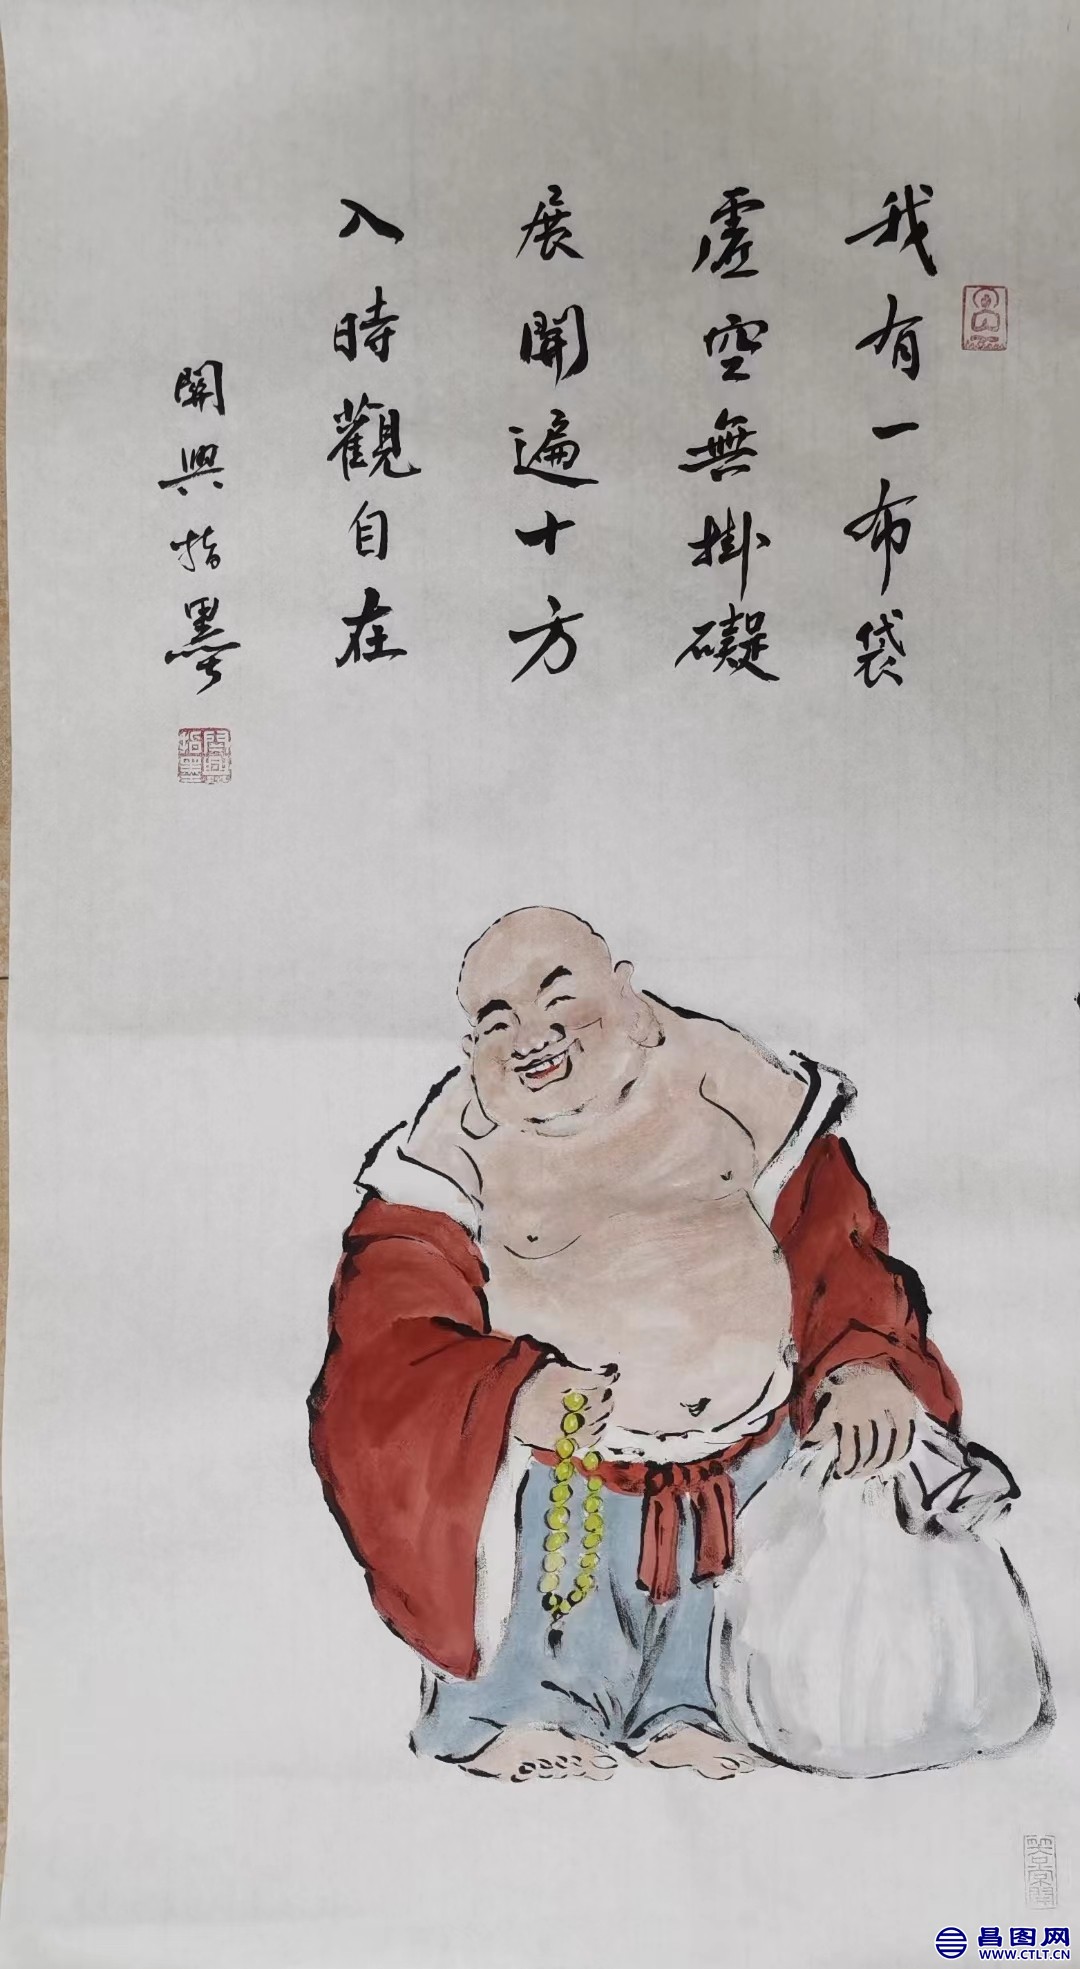 我有一布袋
虛空無掛礙
展開遍十方
入時觀自在
開興指墨
開興指墨
昌图网
WWW.CTLT.CN